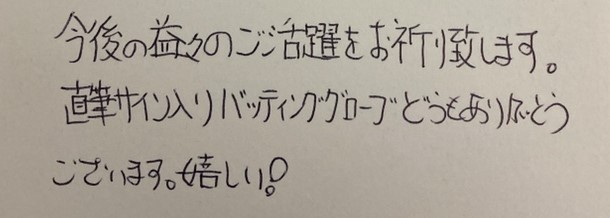 今後の益々のご活躍をお祈り致します。
直筆サイン入りバッティンググローブどうもありがとう
ございます。嬉しい!